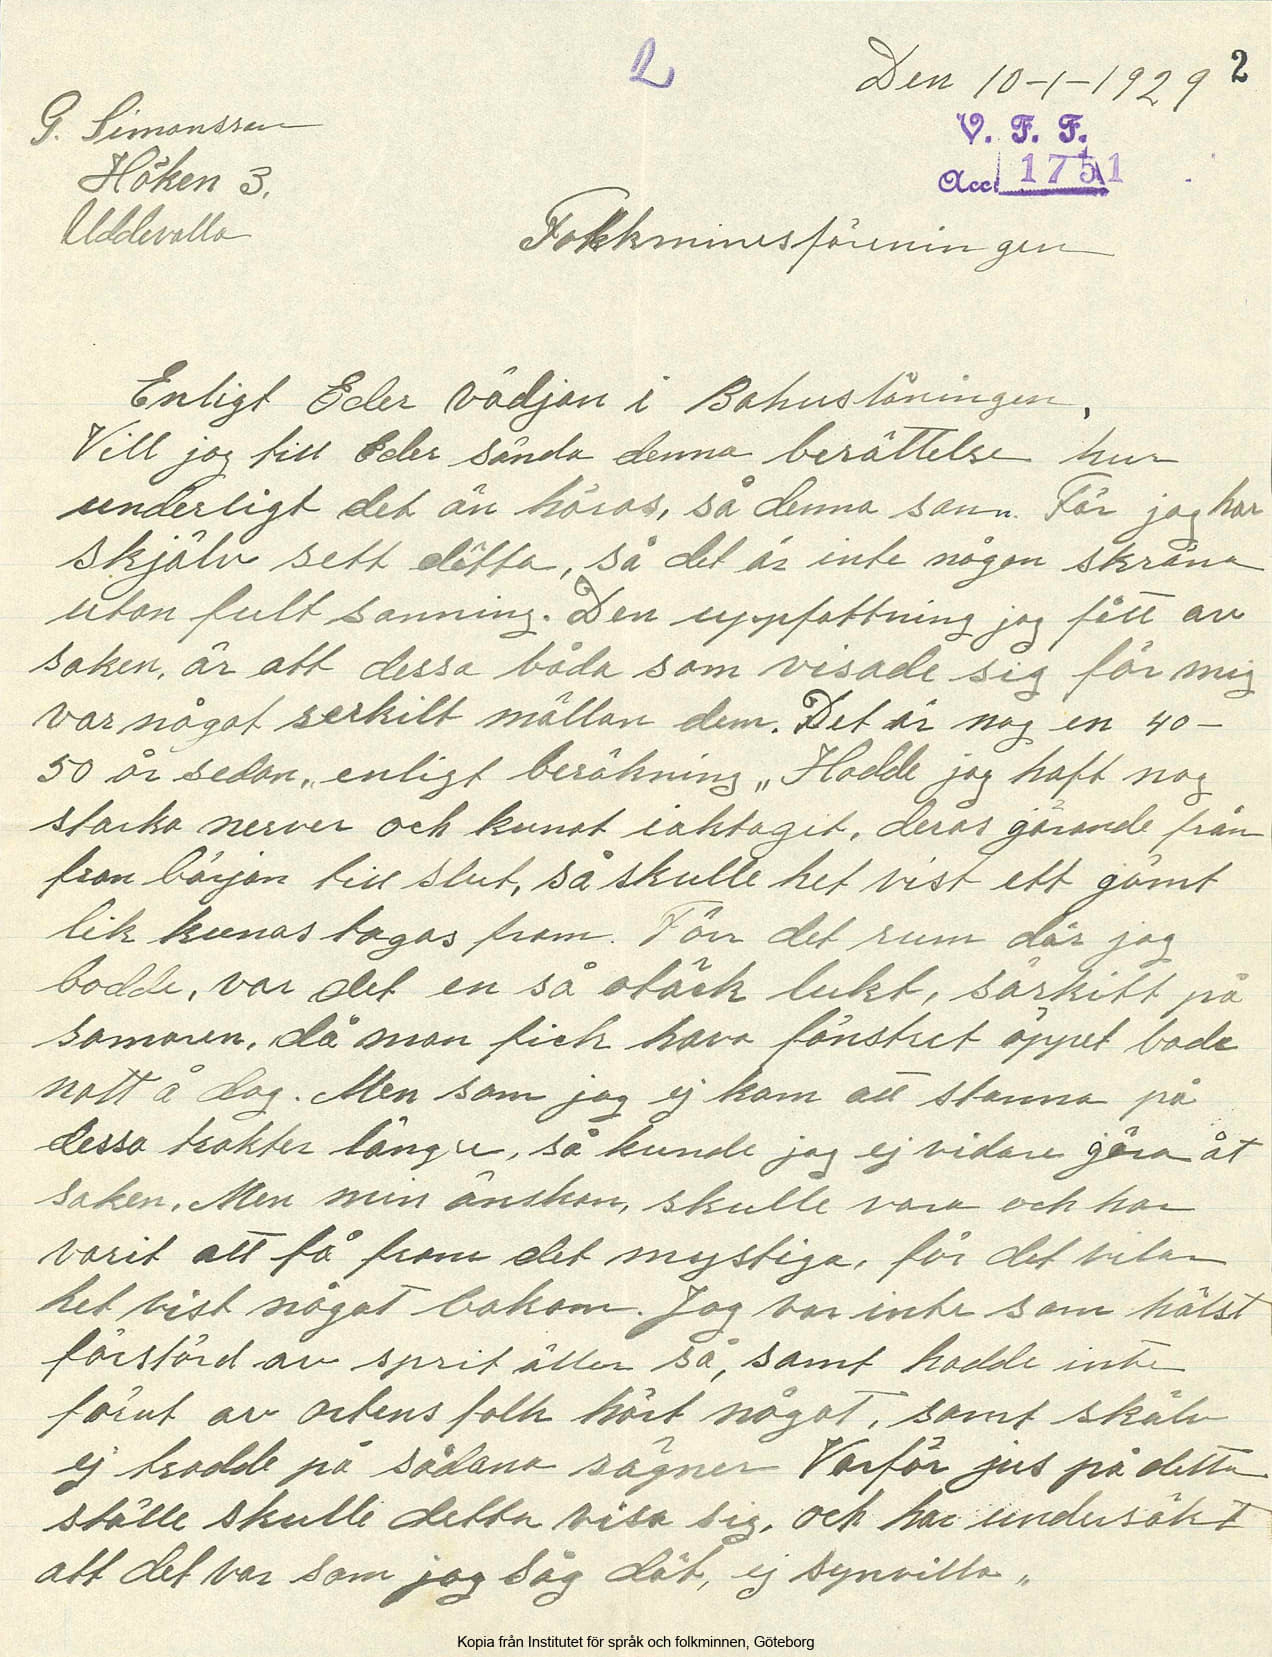 2
Den 10-1-1929
2
G. Simonsson
V. F. F.
Höken 3.
Acc. 1751
Uddevalla
Folkminesföreningen
Enligt Eder vädjan i Bohusläningen,
Vill jag till Eder sända denna berättelse hur
underligt det än höras, så denna sann. För jag har
skjälv sett detta, så det är inte någon skröna
utan fult sanning. Den uppfattning jag fått av
saken, är att dessa båda som visade sig för mig
var något serkilt mällan dem. Det är nog en 40-
50 år sedan„ enligt beräkning„ Hadde jag haft nog
starka nerver och kunat iaktagit, deras görande från
fron början till slut, så skulle het vist ett gömt
lik kunas tagas fram. Förr det rum där jag
bodde, var det en så otäck lukt, särkilt på
somaren, då man fick hava fönstret öppet bode
natt å dag. Men som jag ej kom att stanna på
dessa trakter längre, så kunde jag ej vidare göra åt
saken. Men min önskan, skulle vara och har
varit att få fram det mystiga, för det vilar
het vist något bakom. Jag var inte som hälst
förstörd av sprit äller så, samt hadde inte
förut av ortens folk hört något, samt skälv
ej trodde på sådana sägner Varför jus på detta
ställe skulle detta visa sig, och har undersökt
att det var som jag såg dät, ej synvilla„
Kopia från Institutet för språk och folkminnen, Göteborg